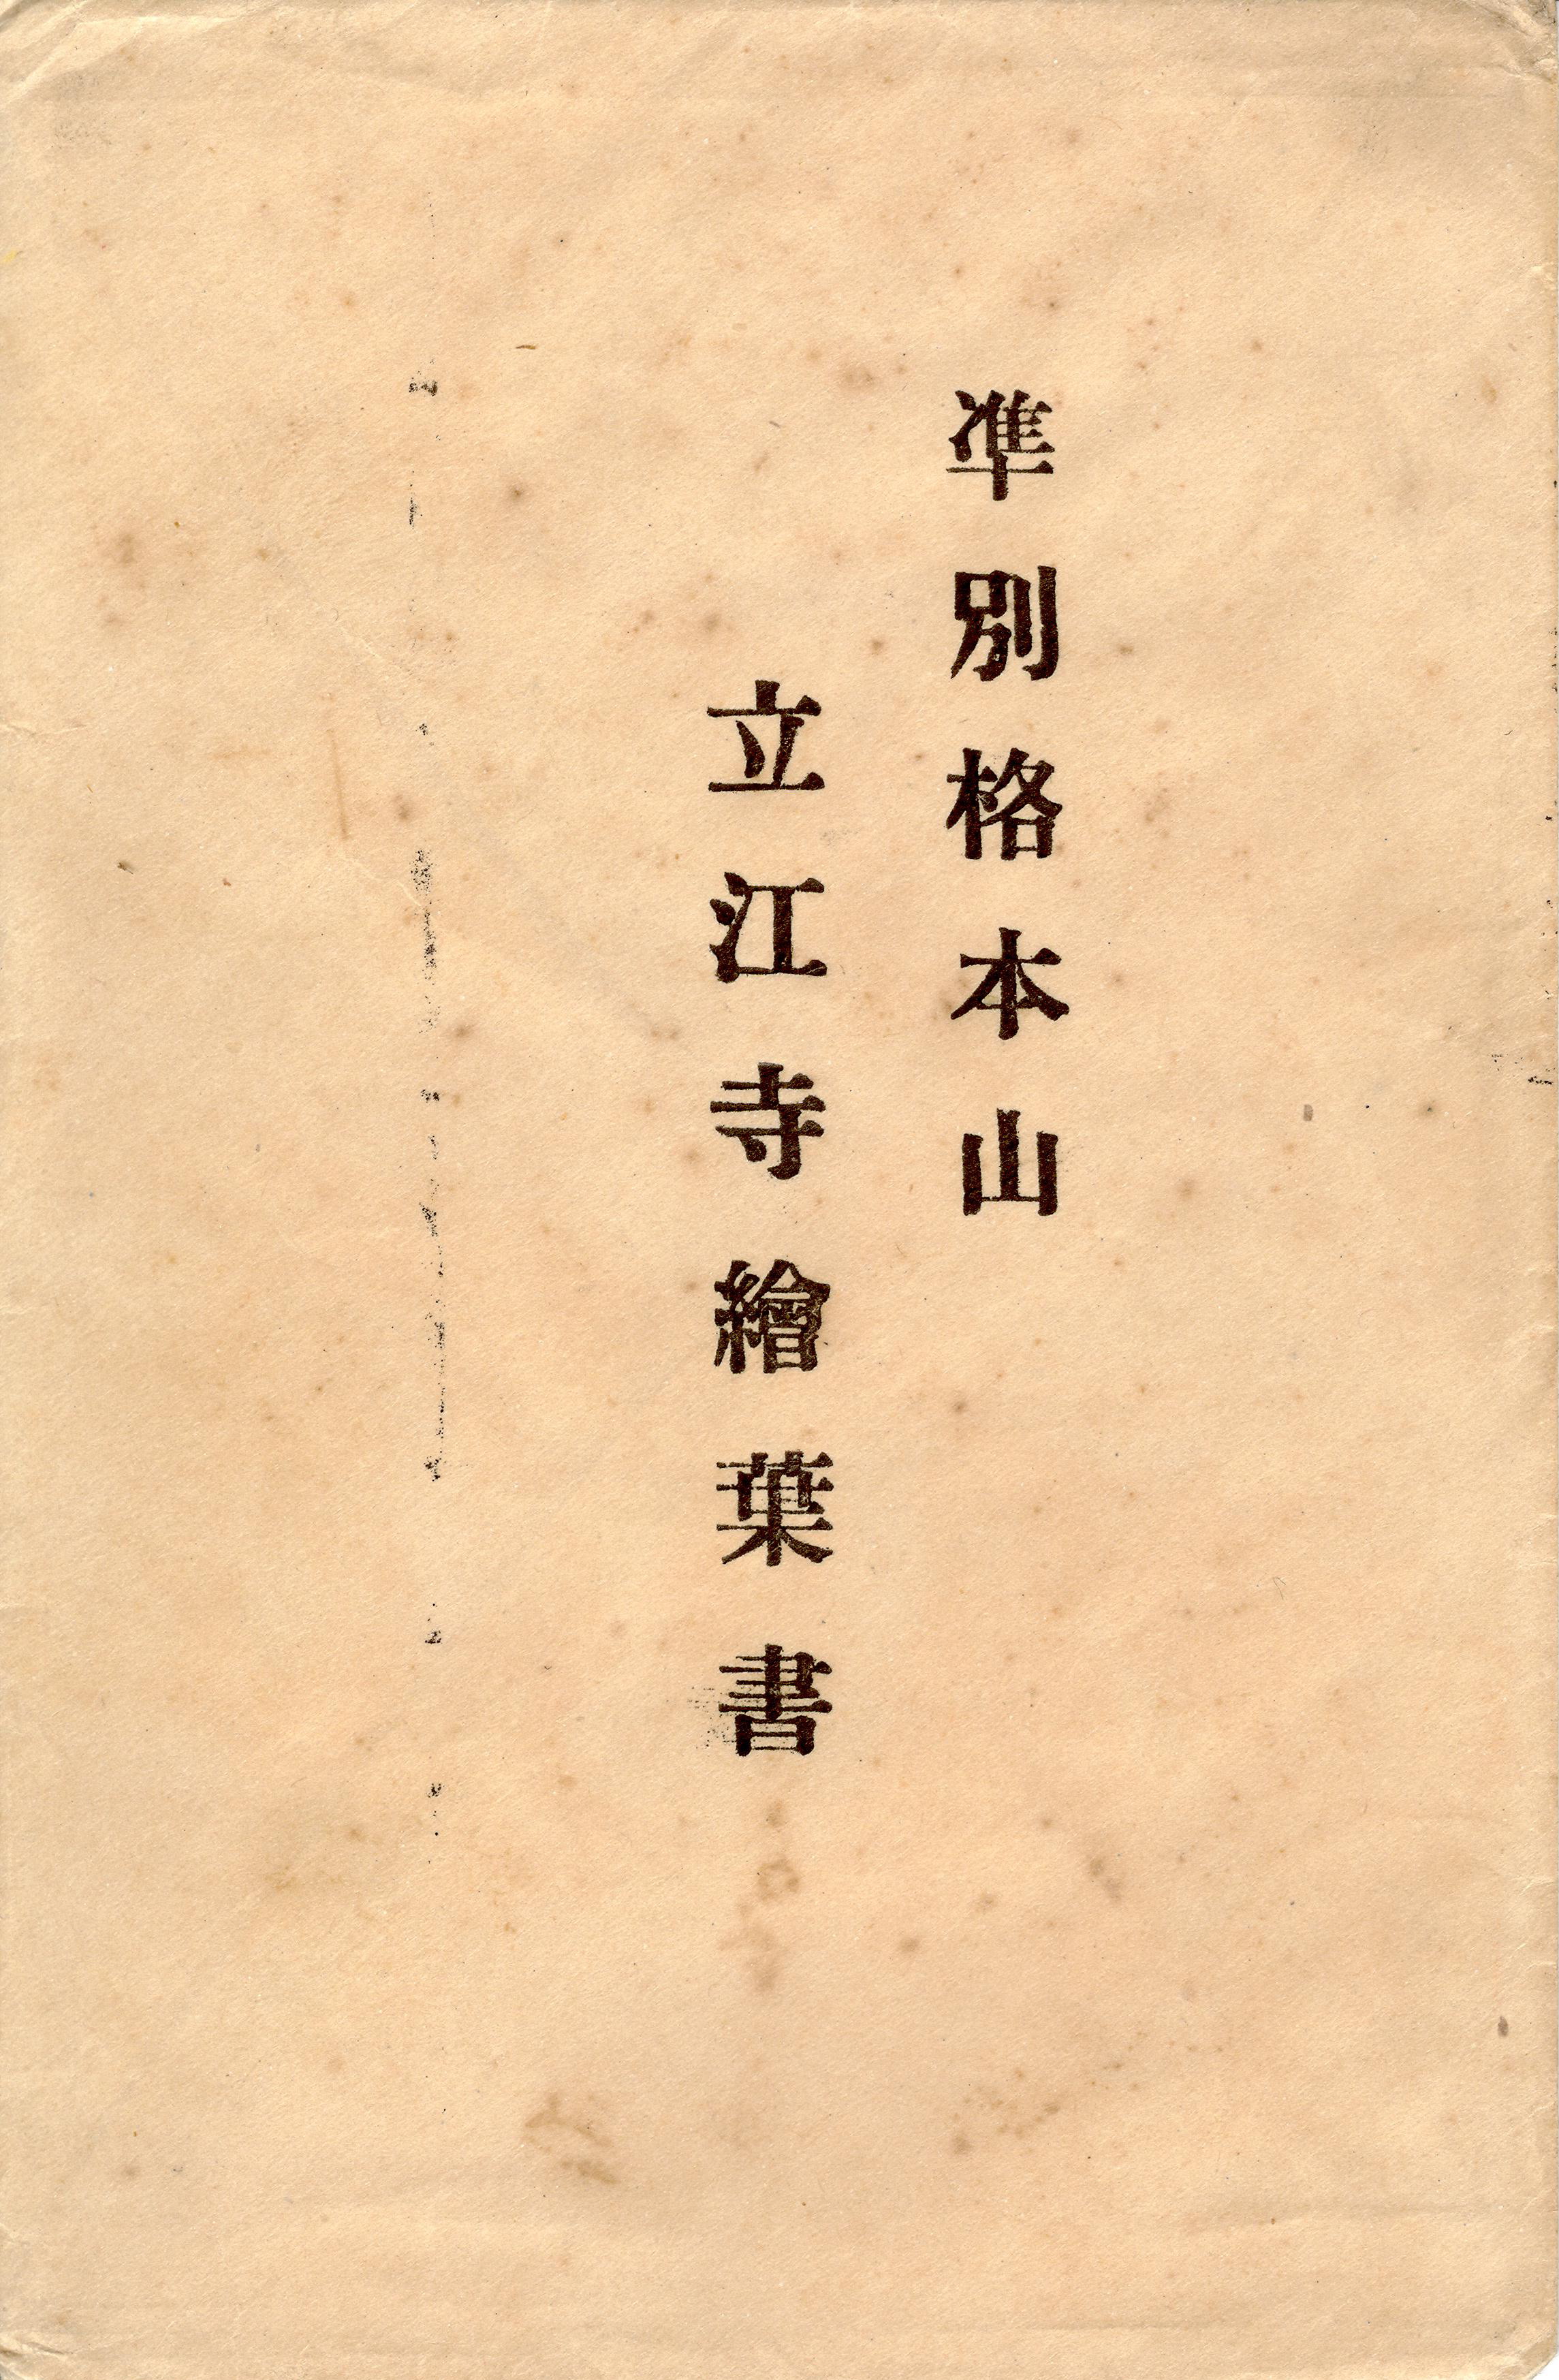 準別格本山
立江寺繪葉書